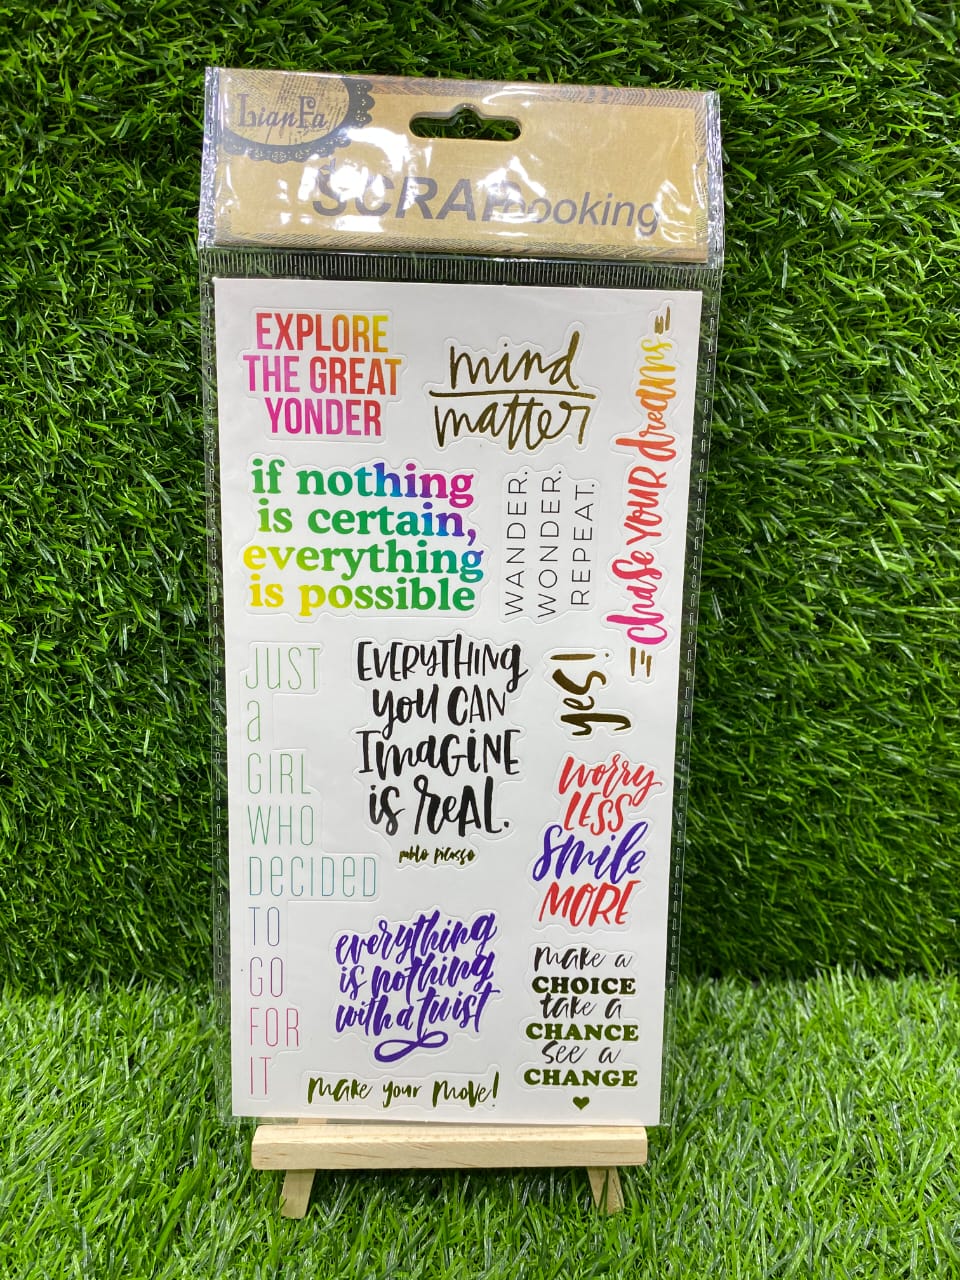 LianFa
SCRAPbooking
EXPLORE
THE GREAT
YONDER
mind
matter
chase YOUR dreams
if nothing
is certain,
everything
is possible
WANDER.
WONDER.
REPEAT.
JUST
a
GIRL
WHO
DECIDED
TO
GO
FOR
IT
EVERYTHING
YOU CAN
IMAGINE
is REAL.
pablo picasso
yes!
worry
LESS
SMILE
MORE
everything
is nothing
with a twist
make a
CHOICE
take a
CHANCE
see a
CHANGE
make your move!